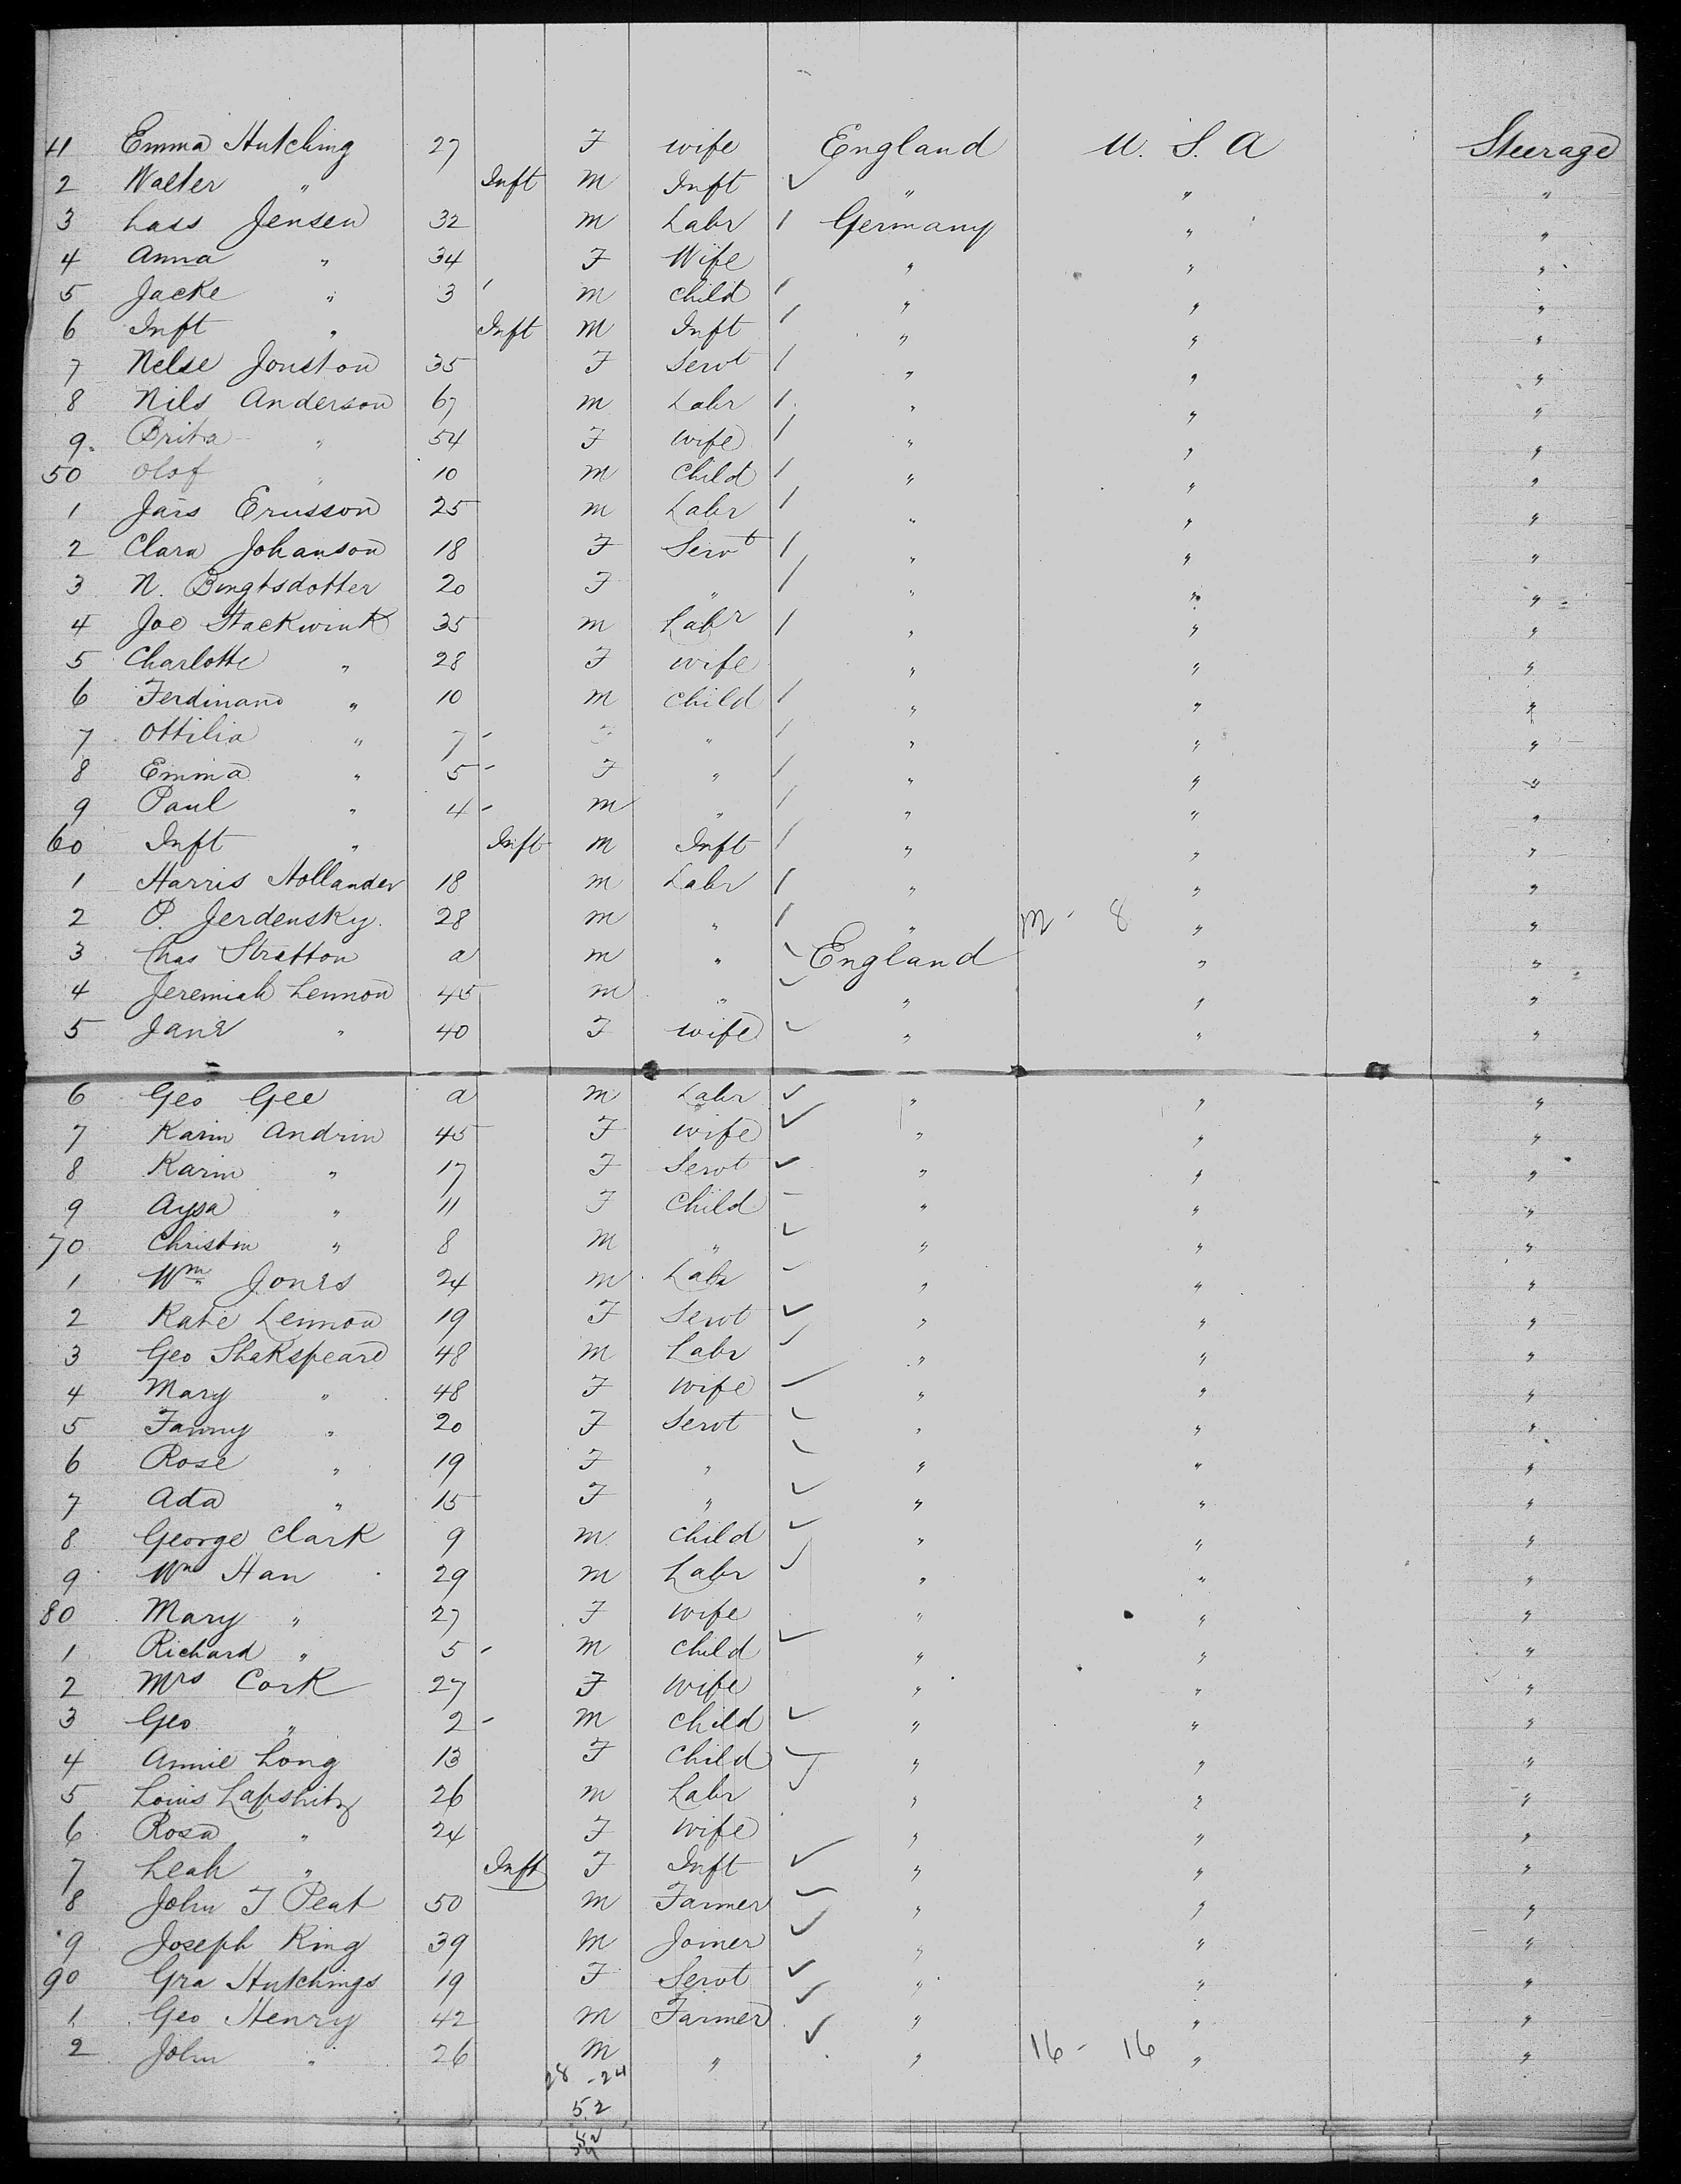 41 Emma Hutching 27 F wife England U. S. A Steerage
2 Walter " Inft M Inft " " "
3 Lass Jensen 32 M Labr Germany " "
4 Anna " 34 F Wife " " "
5 Jacke " 3 M Child " " "
6 Inft " Inft M Inft " " "
7 Nelse Jonston 35 F Servt " " "
8 Nils Anderson 67 M Labr " " "
9 Brita " 54 F wife " " "
50 Olof " 10 M Child " " "
1 Jars Erusson 25 M Labr " " "
2 Clara Johanson 18 F Servt " " "
3 N. Bengtsdotter 20 F " " " "
4 Joe Stackwink 35 M Labr " " "
5 Charlotte " 28 F wife " " "
6 Ferdinand " 10 M Child " " "
7 Ottilia " 7 " " " "
8 Emma " 5 F " " " "
9 Paul " 4 M " " " "
60 Inft " Inft M Inft " " "
1 Harris Hollander 18 M Labr " " "
2 P. Jerdensky 28 M " " M - 8 " "
3 Chas Stratton a M " England " "
4 Jeremiah Lennon 45 M " " " "
5 Jane " 40 F wife " " "
6 Geo Gee a M Labr " " "
7 Karin Andrin 45 F wife " " "
8 Karin " 17 F Servt " " "
9 Aysa " 11 F Child " " "
70 Christin " 8 M " " " "
1 Wm Jones 24 M Labr " " "
2 Kate Lennon 19 F Servt " " "
3 Geo Shakspeare 48 M Labr " " "
4 Mary " 48 F wife " " "
5 Fanny " 20 F Servt " " "
6 Rose " 19 F " " " "
7 Ada " 15 F " " " "
8 George Clark 9 M Child " " "
9 Wm Han 29 M Labr " " "
80 Mary " 27 F wife " " "
1 Richard " 5 M Child " " "
2 Mrs Cork 27 F wife " " "
3 Geo " 2 M Child " " "
4 Annie Long 13 F Child " " "
5 Louis Lapshitz 26 M Labr " " "
6 Rosa " 24 F wife " " "
7 Leah " Inft F Inft " " "
8 John T Peat 50 M Farmer " " "
9 Joseph King 39 M Joiner " " "
90 Gra Hutchings 19 F Servt " " "
1 Geo Henry 42 M Farmer " " "
2 John " 26 M " " 16 - 16 " "
28 - 24
52